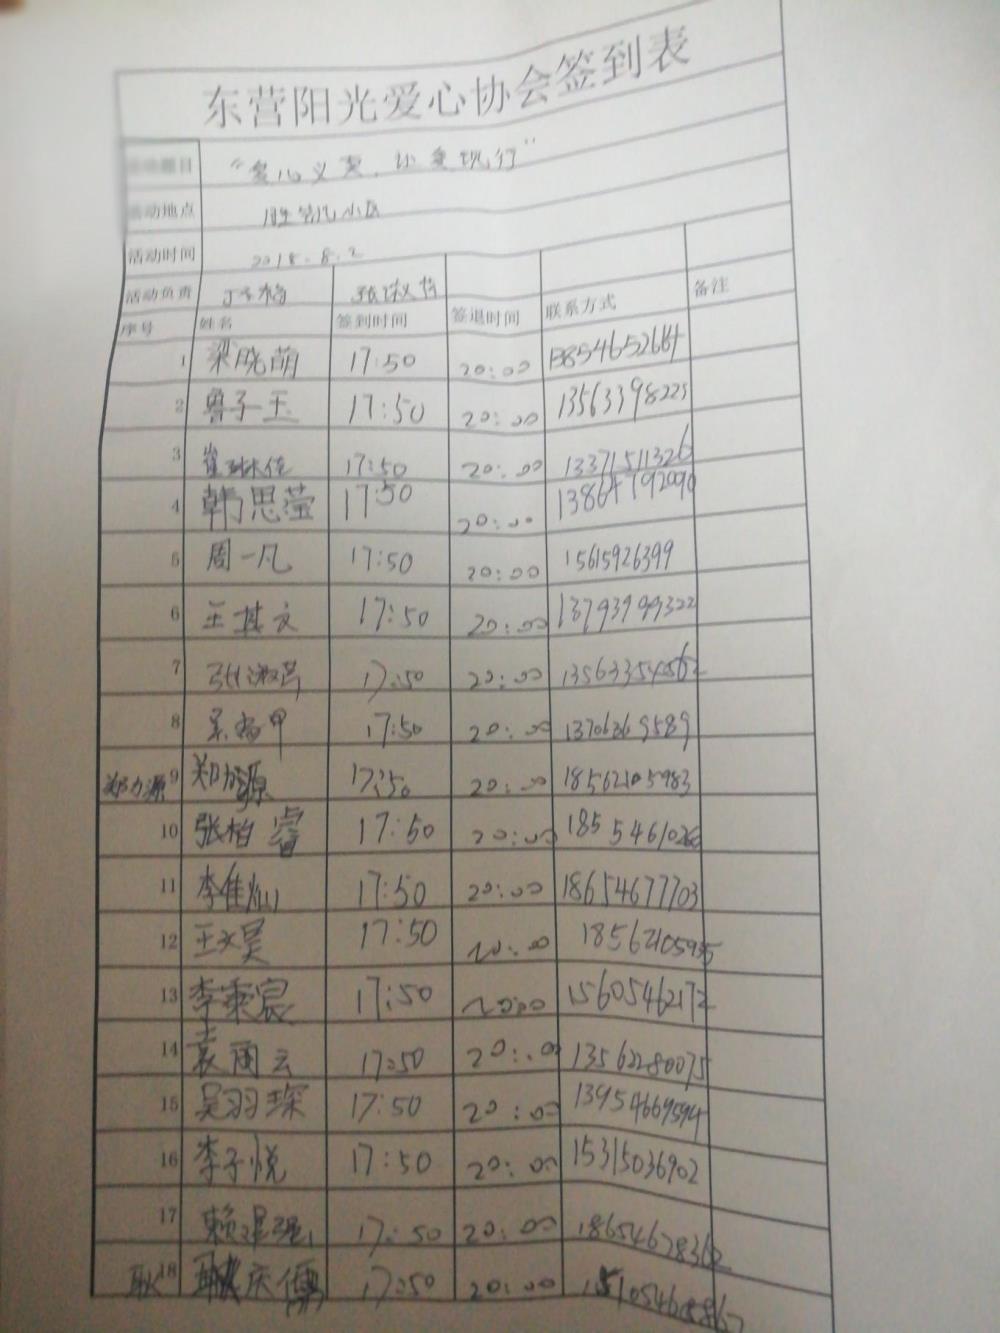 东营阳光爱心协会签到表
活动题目 "爱心义卖,让爱现行"
活动地点 胜凯小区
活动时间 2018.8.2
活动负责
序号 姓名 签到时间 签退时间 联系方式 备注
1 梁晓萌 17:50 20:00 13854652664
2 鲁子玉 17:50 20:00 13563398225
3 17:50 20:00 13371511326
4 韩思莹 17:50 20:00 13864792090
5 周一凡 17:50 20:00 15615926399
6 王其文 17:50 20:00 13793799322
7 张淑芳 17:50 20:00
8 17:50 20:00 13706369589
郑力源 9 郑力源 17:50 20:00 18562105983
10 张柏睿 17:50 20:00 18554610260
11 李佳灿 17:50 20:00 18654677703
12 王文昊 17:50 20:00
13 李秉宸 17:50 20:00 15605462172
14 袁雨云 17:50 20:00 13562280075
15 吴羽琛 17:50 20:00 13954669594
16 李子悦 17:50 20:00 15315036902
17 17:50 20:00 18654678362
耿 18 耿庆儒 17:50 20:00